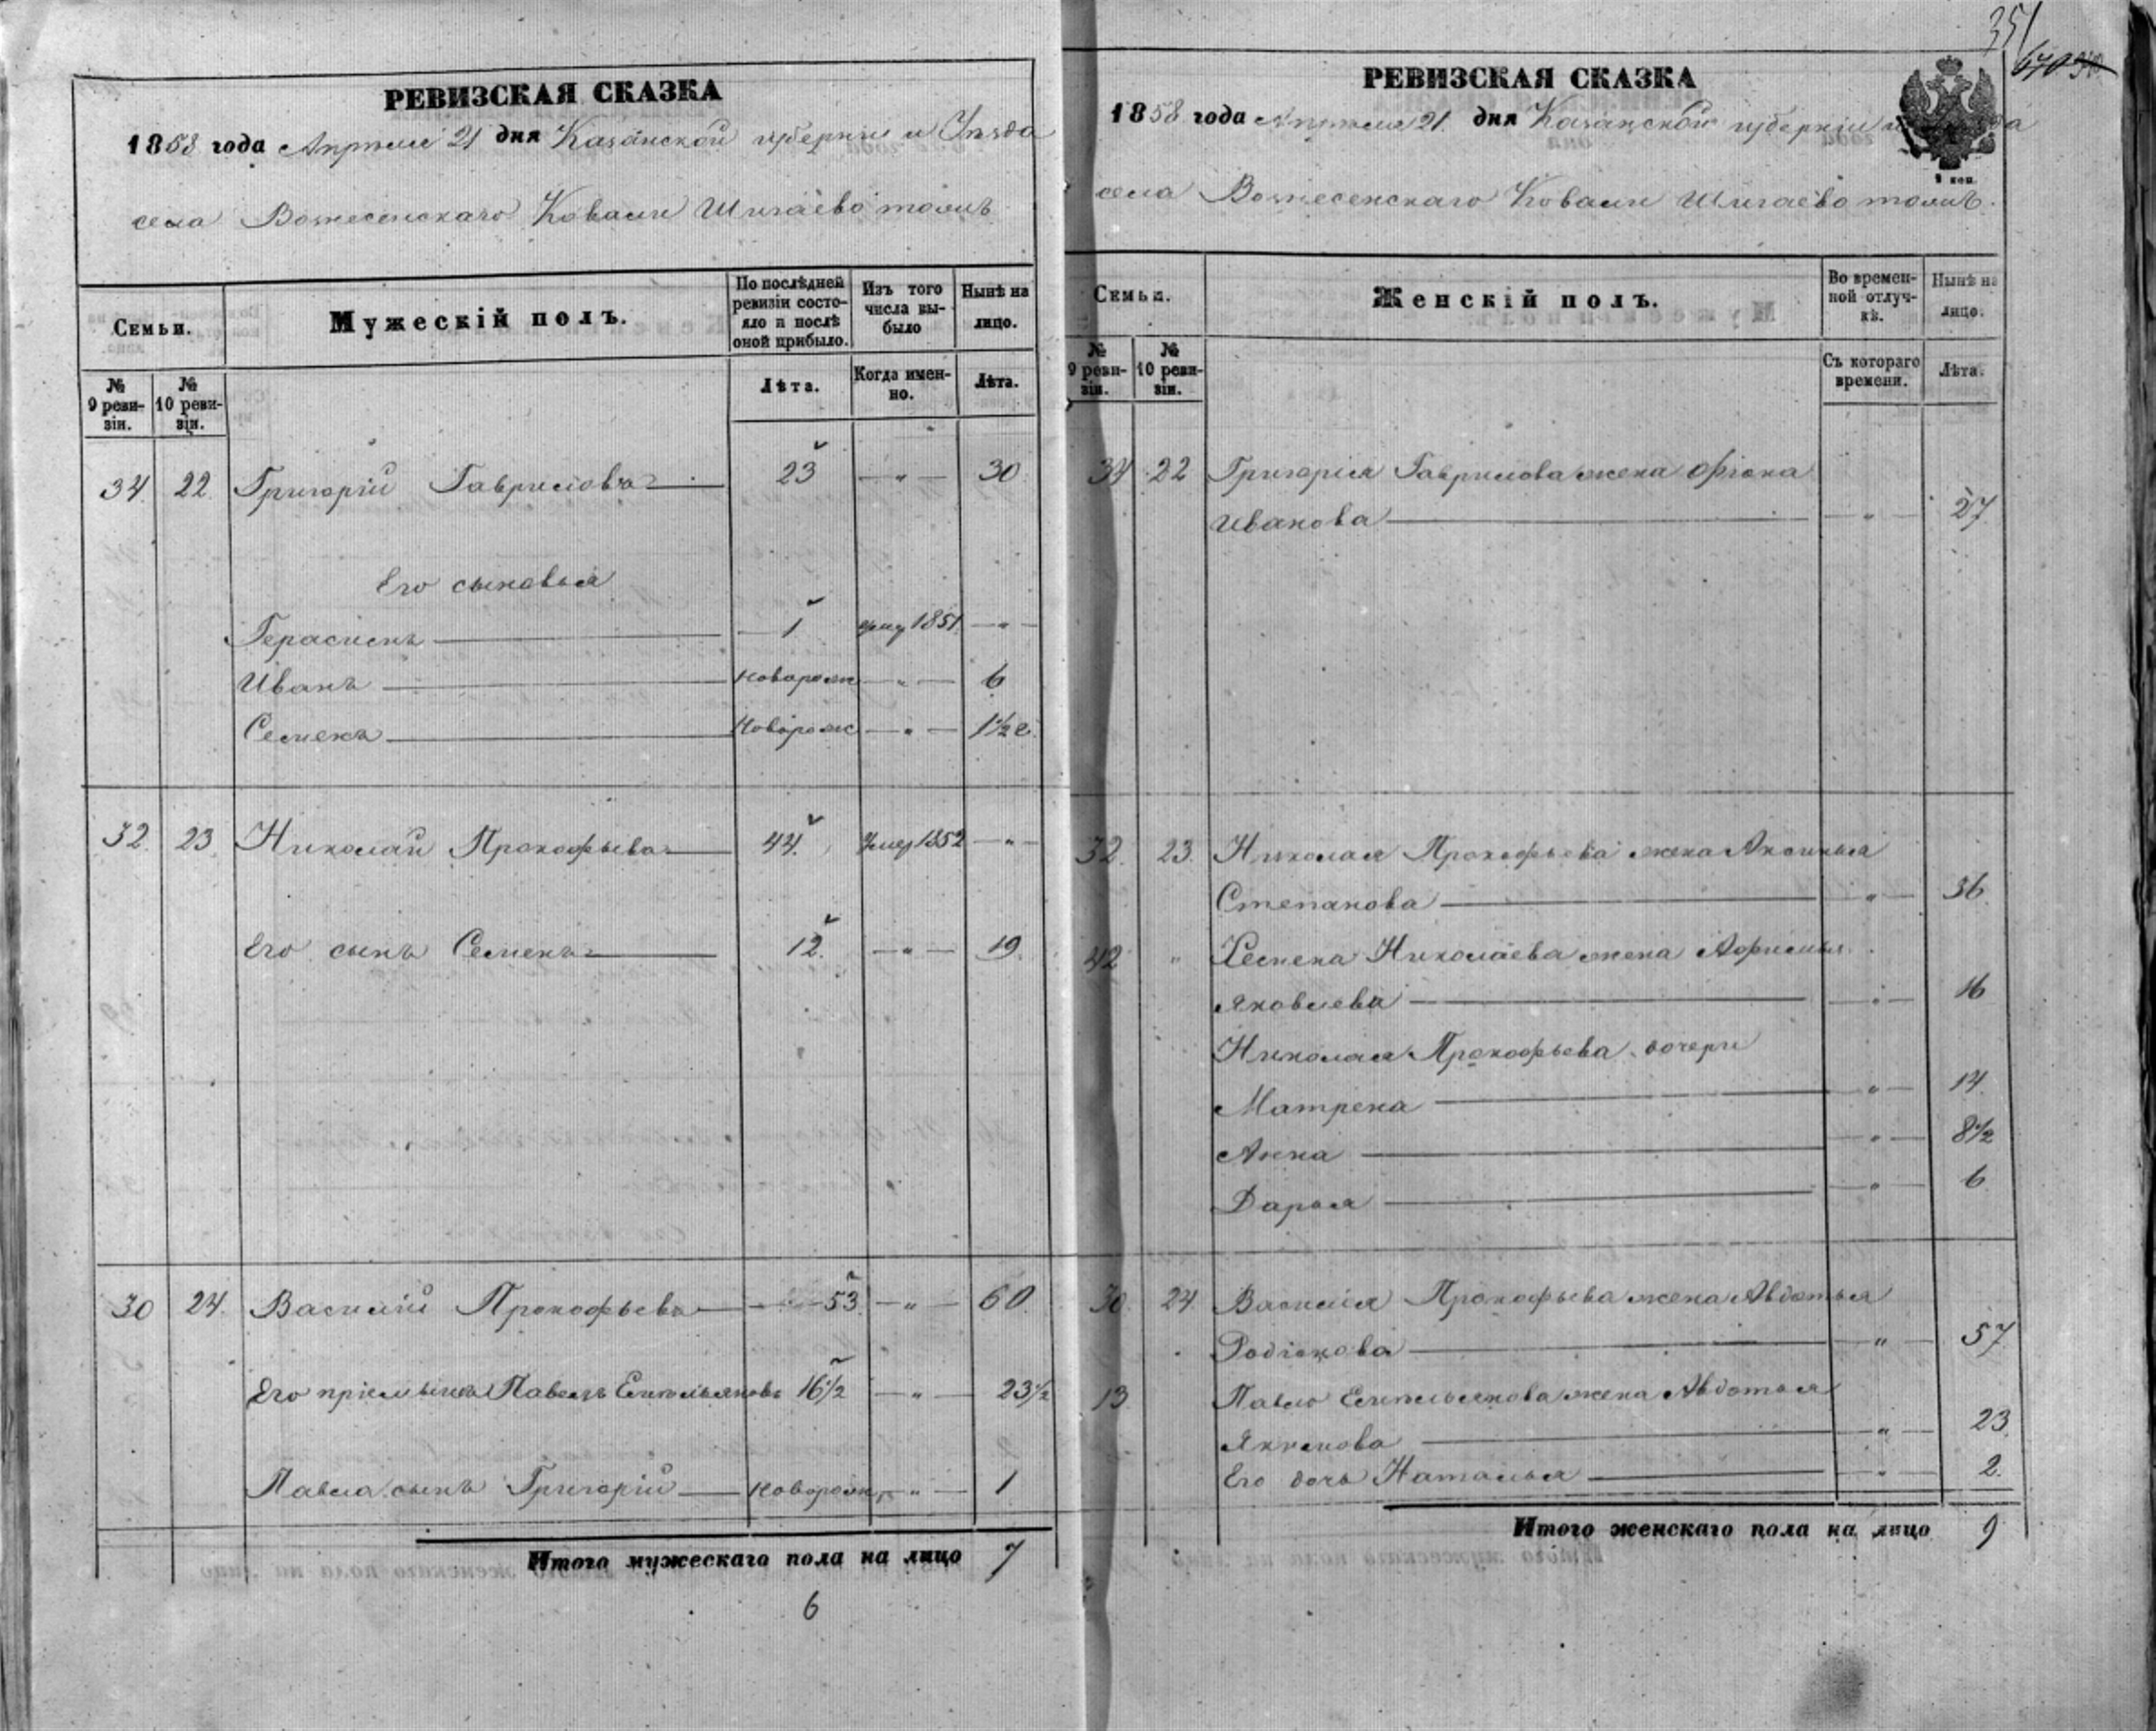 РЕВИЗСКАЯ СКАЗКА
1858 года Апреля 21 дня Казанской губернiи и Уезда
села Вознесенскаго Ковали Шигаево тожъ
Семьи.
Мужескiй полъ.
По послѣдней ревизiи состояло и послѣ оной прибыло.
Изъ того числа выбыло
Нынѣ на лицо.
№ 9 ревизiи.
№ 10 ревизiи.
Лѣта.
Когда именно.
Лѣта.
34. 22. Григорiй Гавриловъ 23 — " — 30.
Его сыновья
Герасимъ 1 умер 1851. — " —
Иванъ новорож — " — 6
Семенъ новорож — " — 1½ г.
32. 23 Николай Прокофьевъ 44. Умер 1852 — " —
Его сынъ Семенъ 12. — " — 19.
30 24. Василiй Прокофьевъ 53. — " — 60.
Его прiемышъ Павелъ Емельяновъ 16½ — " — 23½
Павла сынъ Григорiй новорож — " — 1
Итого мужескаго пола на лицо 7
6
351
РЕВИЗСКАЯ СКАЗКА
1858 года Апреля 21. дня Казанской губернiи
села Вознесенскаго Ковали Шигаево тожъ.
Семьи.
Женскiй полъ.
Во временной отлучкѣ.
Нынѣ на лицо.
№ 9 ревизiи.
№ 10 ревизiи.
Съ котораго времени.
Лѣта.
34 22 Григорiя Гаврилова жена Фiона
Иванова — " — 27
32. 23. Николая Прокофьева жена Акулина
Степанова — " — 36.
42 " Семена Николаева жена Афимья
Яковлева — " — 16
Николая Прокофьева дочери
Матрена — " — 14.
Анна — " — 8½
Дарья — " — 6
30. 24. Василiя Прокофьева жена Авдотья
Родiонова — " — 57
13. Павла Емельянова жена Авдотья
— " — 23.
Его дочь Наталья — " — 2.
Итого женскаго пола на лицо 9